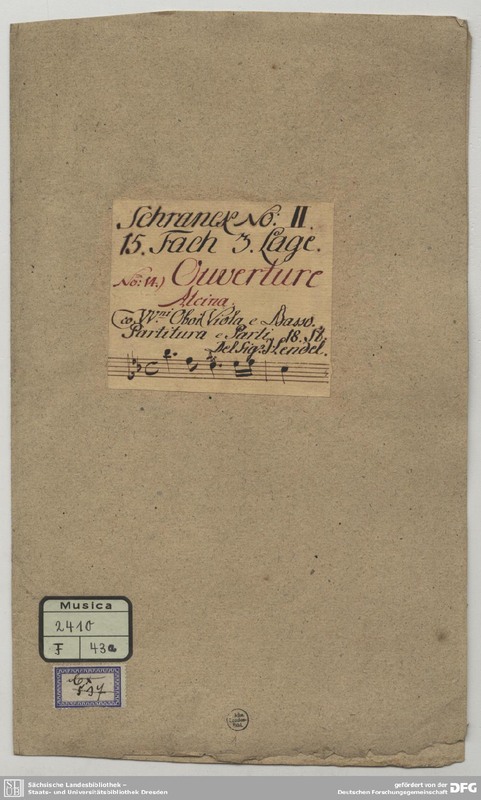 Schranck No: II.
15. Fach 3. Lage.
No: VI.) Ouverture
Alcina
co VV.ni Oboi Viola e Basso.
Partitura e Parti 18. St.
Del Sig.r Hendel.
Musica
2410
F 43a
Cx
Sächsische Landesbibliothek –
Staats- und Universitätsbibliothek Dresden
gefördert von der
Deutschen Forschungsgemeinschaft
DFG